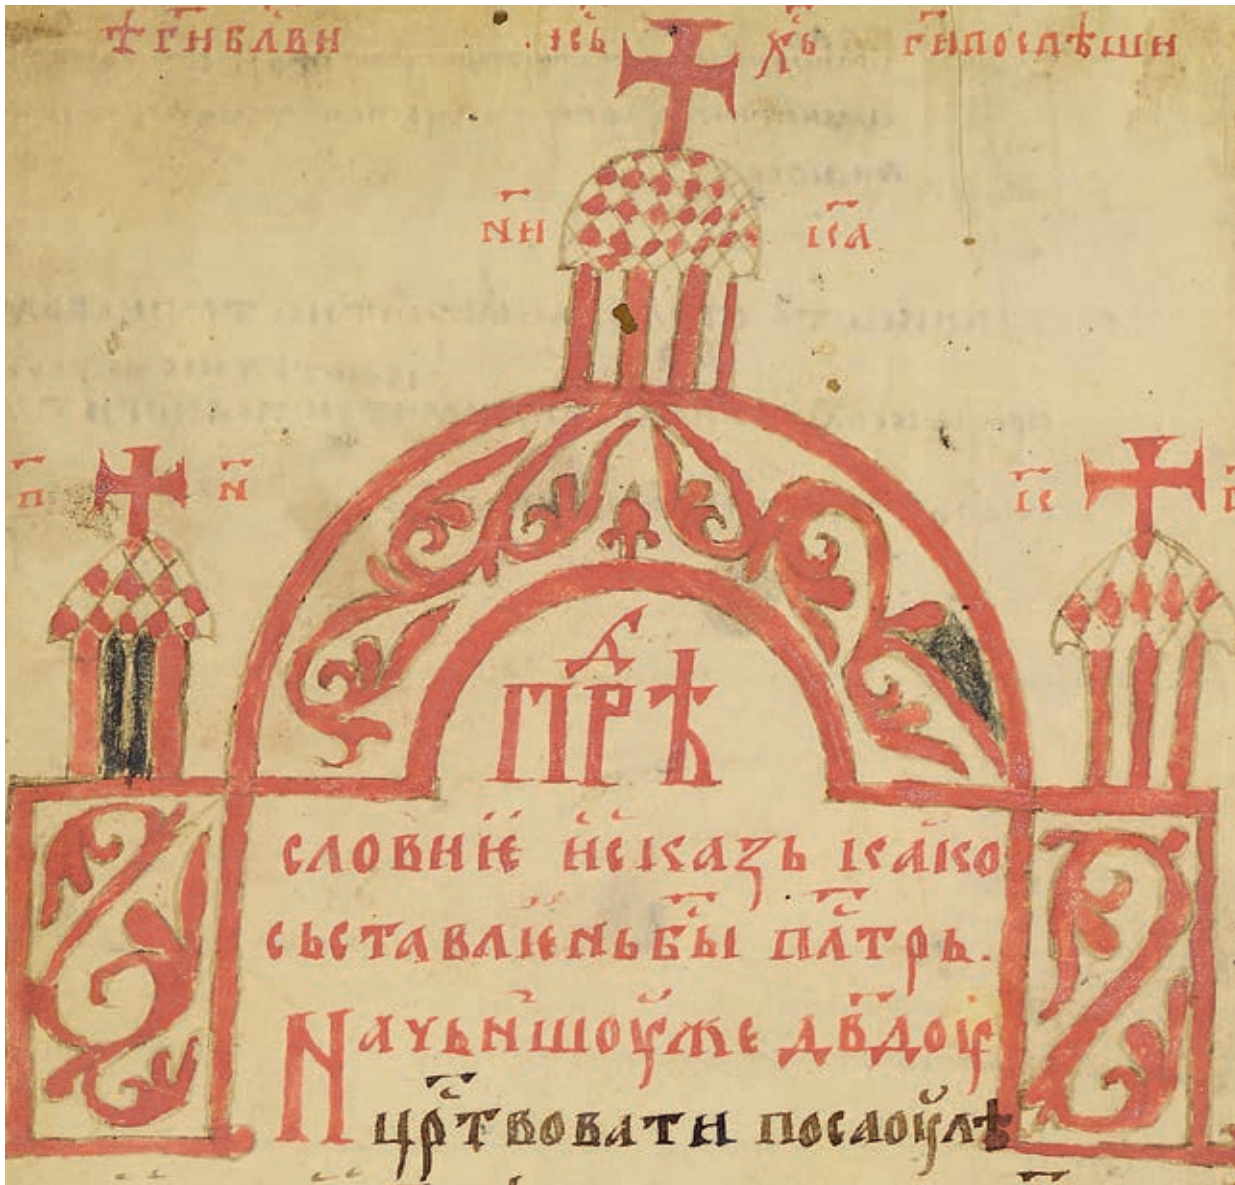 г҃и бл҃ви іс҃ь х҃ь г҃и поспѣши
ни ка
п н к
прѣд
словиѥ и сказь како
сьставлѥнь бы п҃лтрь.
Начьншоу же дв҃доу
цр҃твовати по саоулѣ